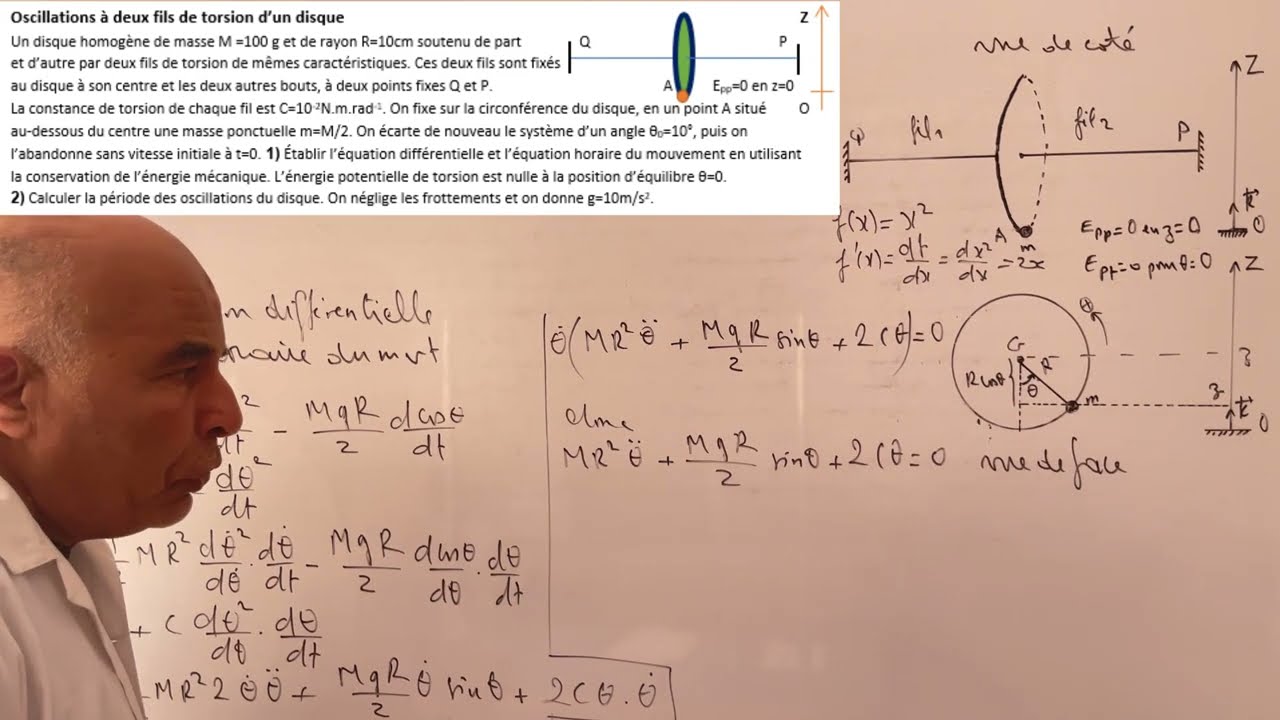 Oscillations à deux fils de torsion d’un disque
Un disque homogène de masse M =100 g et de rayon R=10cm soutenu de part
et d’autre par deux fils de torsion de mêmes caractéristiques. Ces deux fils sont fixés
au disque à son centre et les deux autres bouts, à deux points fixes Q et P.
La constante de torsion de chaque fil est C=10⁻²N.m.rad⁻¹. On fixe sur la circonférence du disque, en un point A situé
au-dessous du centre une masse ponctuelle m=M/2. On écarte de nouveau le système d’un angle θ₀=10°, puis on
l’abandonne sans vitesse initiale à t=0. 1) Établir l’équation différentielle et l’équation horaire du mouvement en utilisant
la conservation de l’énergie mécanique. L’énergie potentielle de torsion est nulle à la position d’équilibre θ=0.
2) Calculer la période des oscillations du disque. On néglige les frottements et on donne g=10m/s².
Q
P
Z
A
Epp=0 en z=0
O
vue de coté
Z
Q
fil₁
fil₂
P
A
m
k⃗
O
f(x)=x²
f'(x)=df/dx = dx²/dx = 2x
Epp=0 en z=0
Ept=0 pour θ=0
Z
⊕
G
R
Rcosθ
θ
m
z
k⃗
O
vue de face
n différentielle
oraire du mvt
² /dt - MgR/2 dcosθ/dt
dθ²/dt
MR² dθ̇²/dθ̇ . dθ̇/dt - MgR/2 dcosθ/dθ . dθ/dt
+ C dθ²/dθ . dθ/dt
MR² 2 θ̇ θ̈ + MgR/2 θ̇ sinθ + 2Cθ.θ̇
θ̇(MR² θ̈ + MgR/2 sinθ + 2Cθ)=0
donc
MR² θ̈ + MgR/2 sinθ + 2Cθ = 0